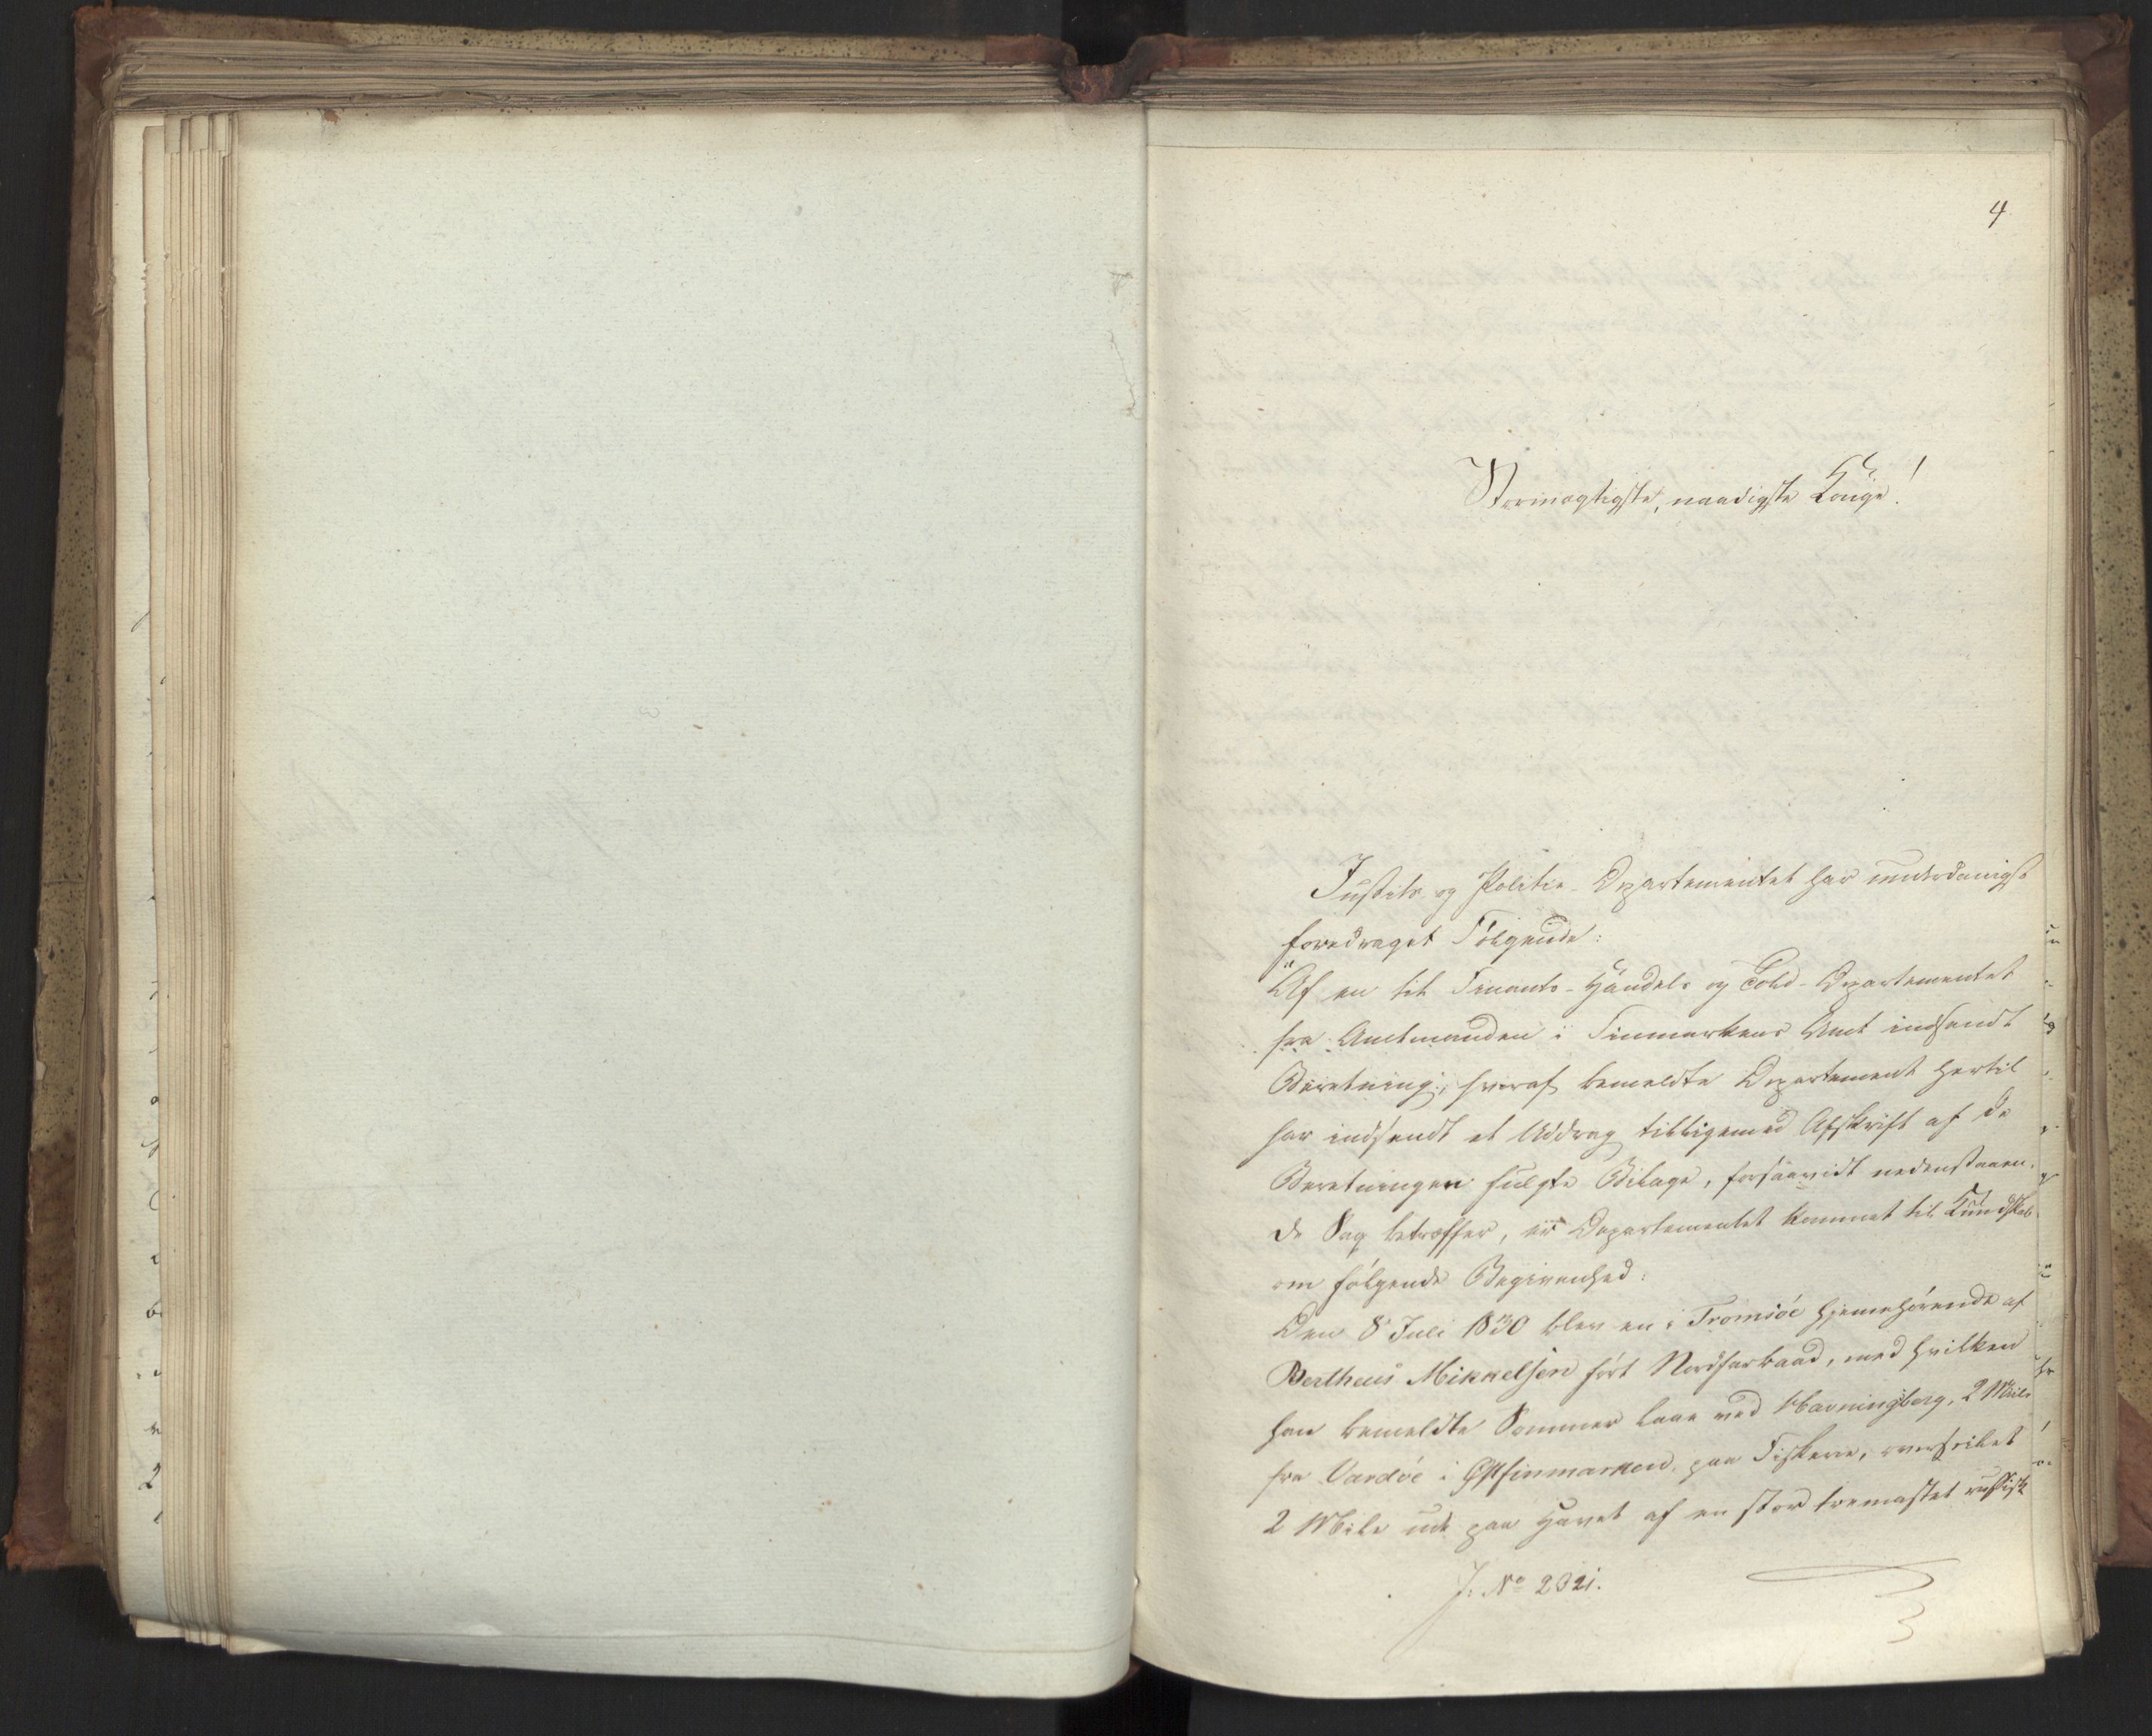 4
Stormægtigste, naadigste Konge!
Justits og Politie-Departementet har underdanigst
foredraget Følgende:
"Af en til Finants-Handels og Told-Departementet
fra Amtmanden i Finmarkens Amt indsendt
Beretning, hvoraf bemeldte Departement hertil
har indsendt et Uddrag tilligemed Afskrift af de
Beretningen fulgte Bilage, forsaavidt nedenstaaen-
de Sag betræffer, er Departementet kommet til Kundskab
om følgende Begivenhed:
Den 8 Juli 1830 blev en i Tromsöe hjemmehørende af
Bertheus Mikkelsen ført Nordfarbaad, med hvilken
han bemeldte Sommer laae ved Havningberg, 2 Mile
fra Vardöe i Østfinmarken, paa Fiskerie, overseilet
2 Mile ude paa Havet af en stor tremastet russisk
J. No 2321.